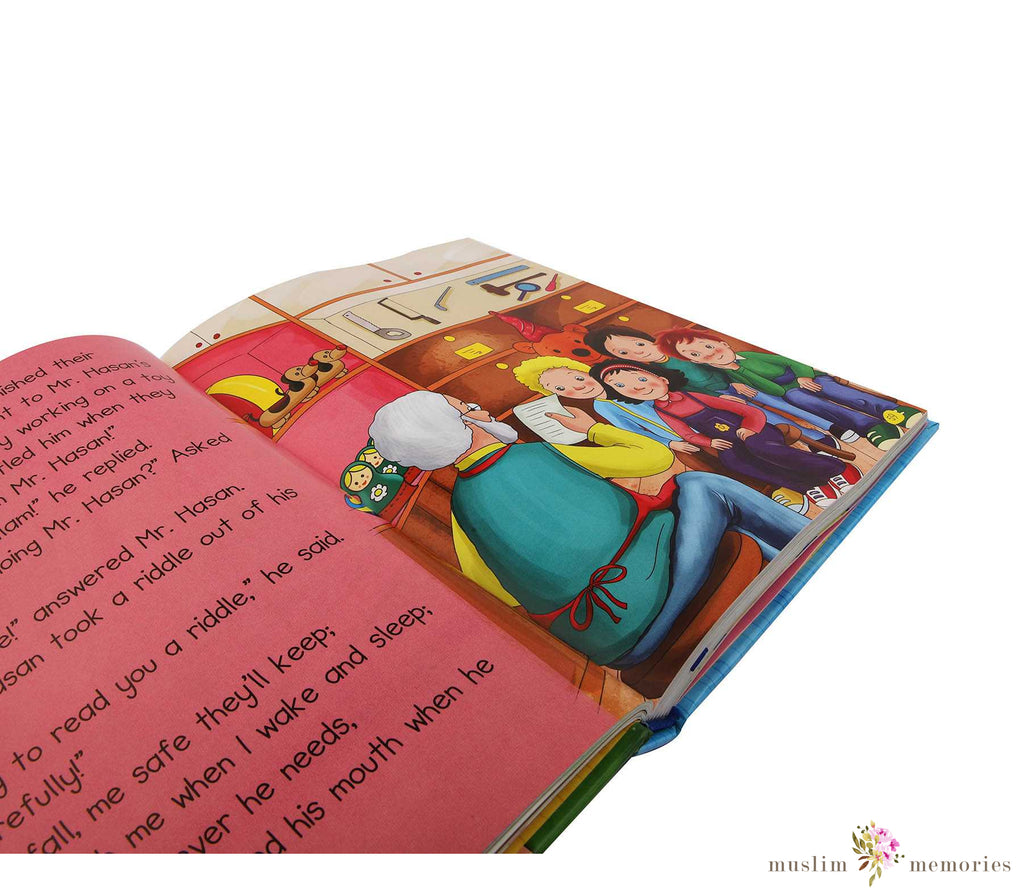 ished their
t to Mr. Hasan's
y working on a toy
rtled him when they
n Mr. Hasan!"
lam!" he replied.
oing Mr. Hasan?" Asked
e!" answered Mr. Hasan.
asan took a riddle out of his
g to read you a riddle," he said.
refully!"
fall, me safe they'll keep;
h me when I wake and sleep;
ver he needs,
nd his mouth when he
muslim memories